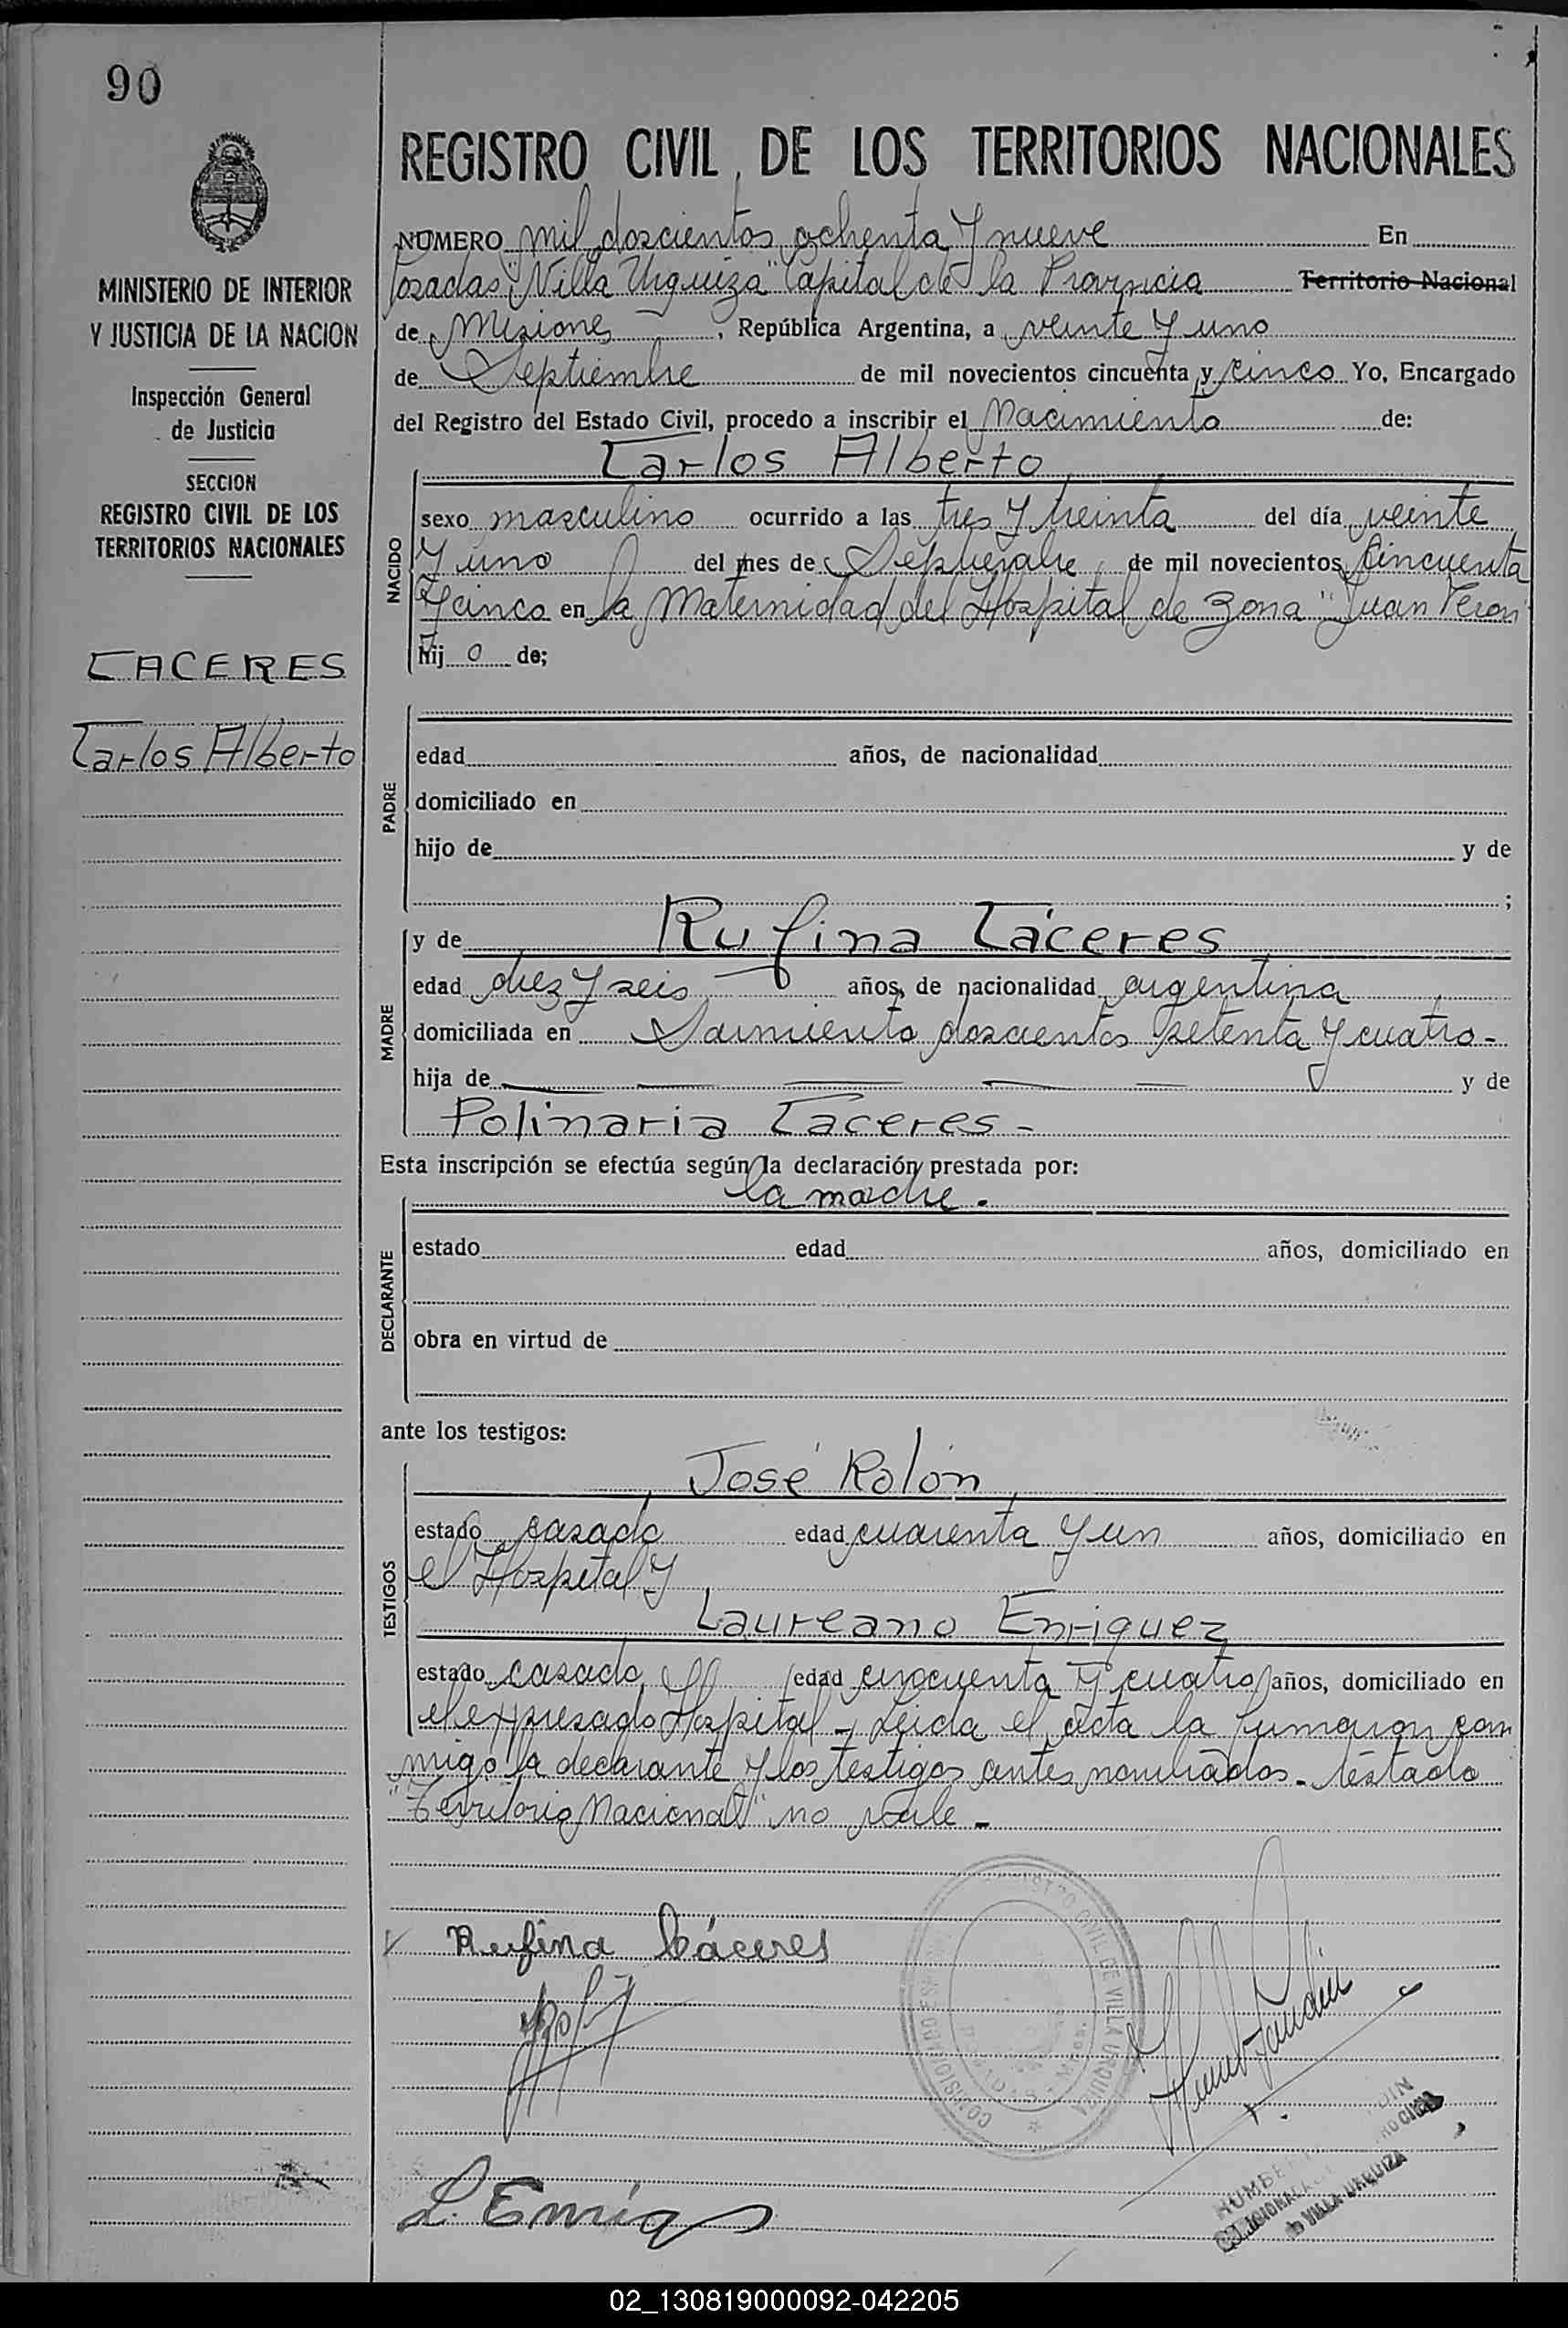 90
MINISTERIO DE INTERIOR
Y JUSTICIA DE LA NACION
Inspección General
de Justicia
SECCION
REGISTRO CIVIL DE LOS
TERRITORIOS NACIONALES
CACERES
Carlos Alberto
REGISTRO CIVIL DE LOS TERRITORIOS NACIONALES
NUMERO mil doscientos ochenta y nueve En
Posadas "Villa Urquiza" Capital de la Provincia Territorio Nacional
de Misiones, República Argentina, a veinte y uno
de Septiembre de mil novecientos cincuenta y cinco Yo, Encargado
del Registro del Estado Civil, procedo a inscribir el Nacimiento de:
Carlos Alberto
NACIDO
sexo masculino ocurrido a las tres y treinta del día veinte
y uno del mes de Septiembre de mil novecientos cincuenta
y cinco en la Maternidad del Hospital de Zona "Juan Peron"
hij o de;
PADRE
edad años, de nacionalidad
domiciliado en
hijo de y de
;
MADRE
y de Rufina Cáceres
edad diez y seis años, de nacionalidad argentina
domiciliada en Sarmiento doscientos setenta y cuatro -
hija de y de
Polinaria Caceres -
Esta inscripción se efectúa según la declaración prestada por:
la madre.
DECLARANTE
estado edad años, domiciliado en
obra en virtud de
ante los testigos:
TESTIGOS
José Rolón
estado casado edad cuarenta y un años, domiciliado en
el Hospital y
Laureano Enriquez
estado casado edad cincuenta y cuatro años, domiciliado en
el expresado Hospital - Leida el acta la firmaron con
migo la declarante y los testigos antes nombrados - testado
"Territorio Nacional" no vale -
Rufina Cáceres
L. Enriq
CIVIL DE VILLA URQUIZA
VILLA URQUIZA
02_130819000092-042205